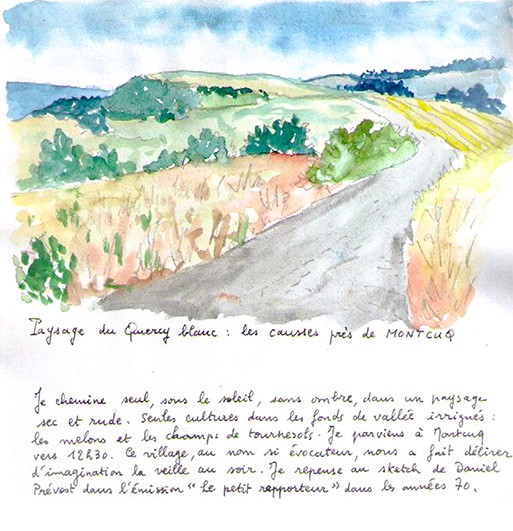 Paysage du Quercy blanc : les causses près de MONTCUQ
Je chemine seul, sous le soleil, sans ombre, dans un paysage
sec et rude. Seules cultures dans les fonds de vallée irrigués :
les melons et les champs de tournesols. Je parviens à Montcuq
vers 12h30. Ce village, au nom si évocateur, nous a fait délirer
d'imagination la veille au soir. Je repense au sketch de Daniel
Prévost dans l'émission "Le petit rapporteur" dans les années 70.